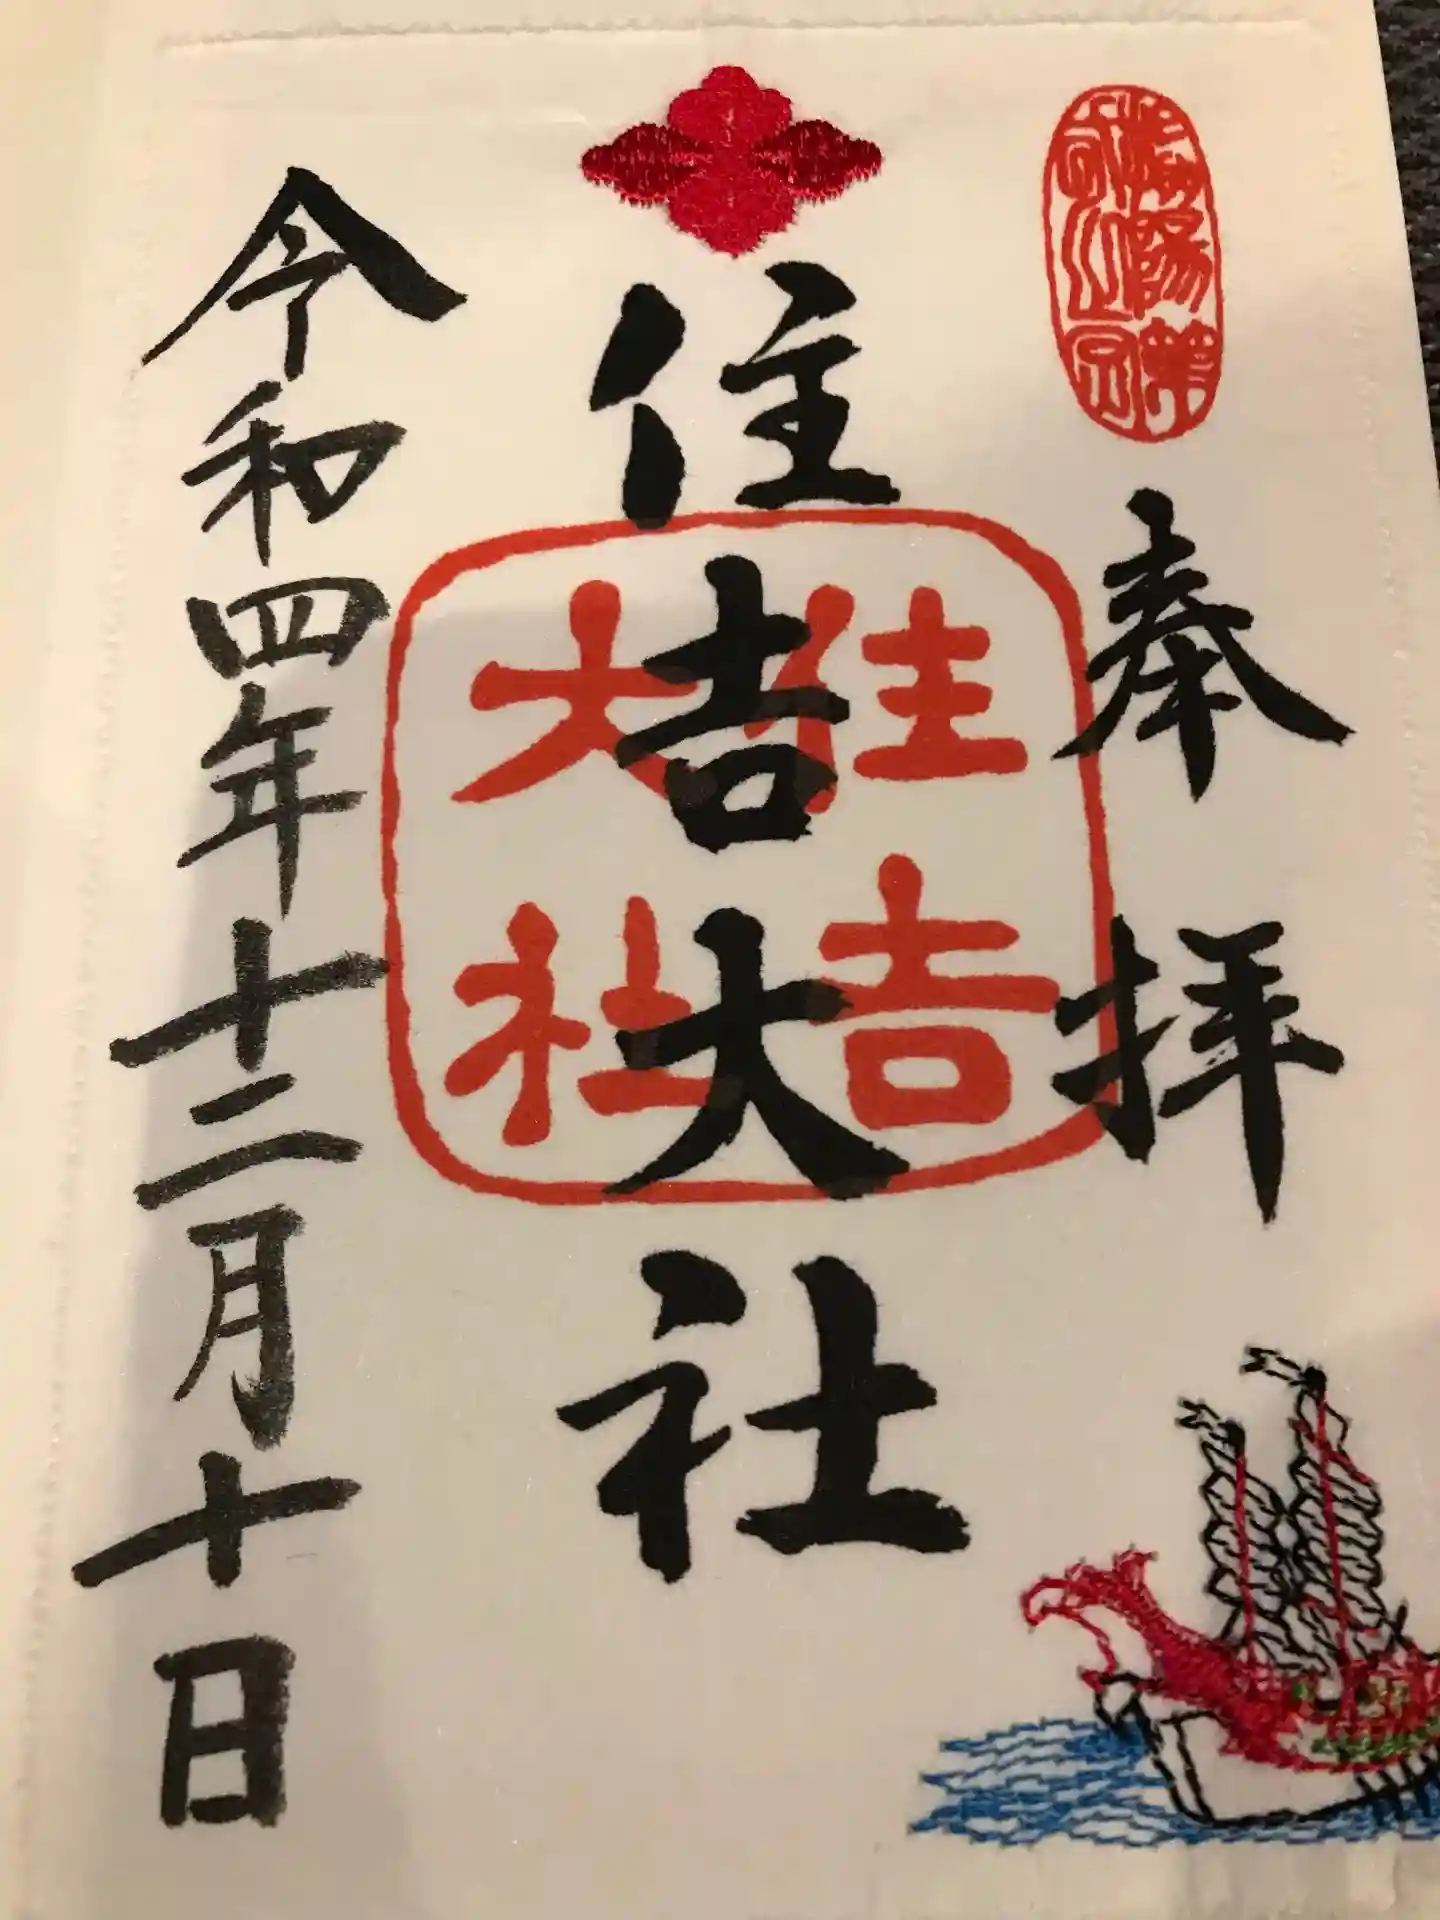 奉拝
住吉大社
住吉
大社
令和四年十二月十日